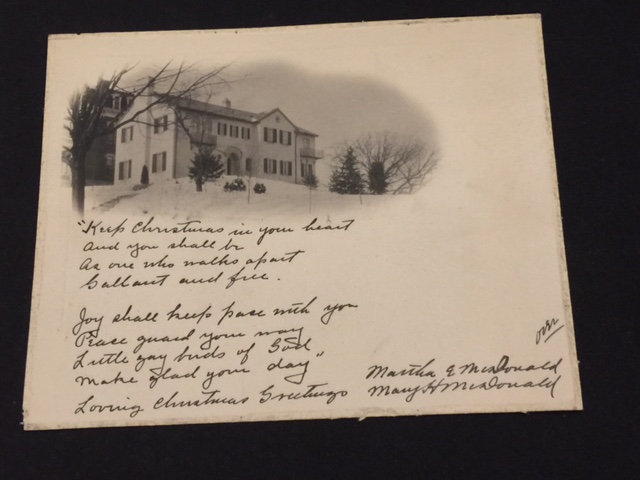 "Keep Christmas in your heart
And you shall be
As one who walks apart
Gallant and free.
Joy shall keep pace with you
Peace guard your way
Little gay birds of God
Make glad your day"
Loving Christmas Greetings
over
Martha E McDonald
Mary H McDonald